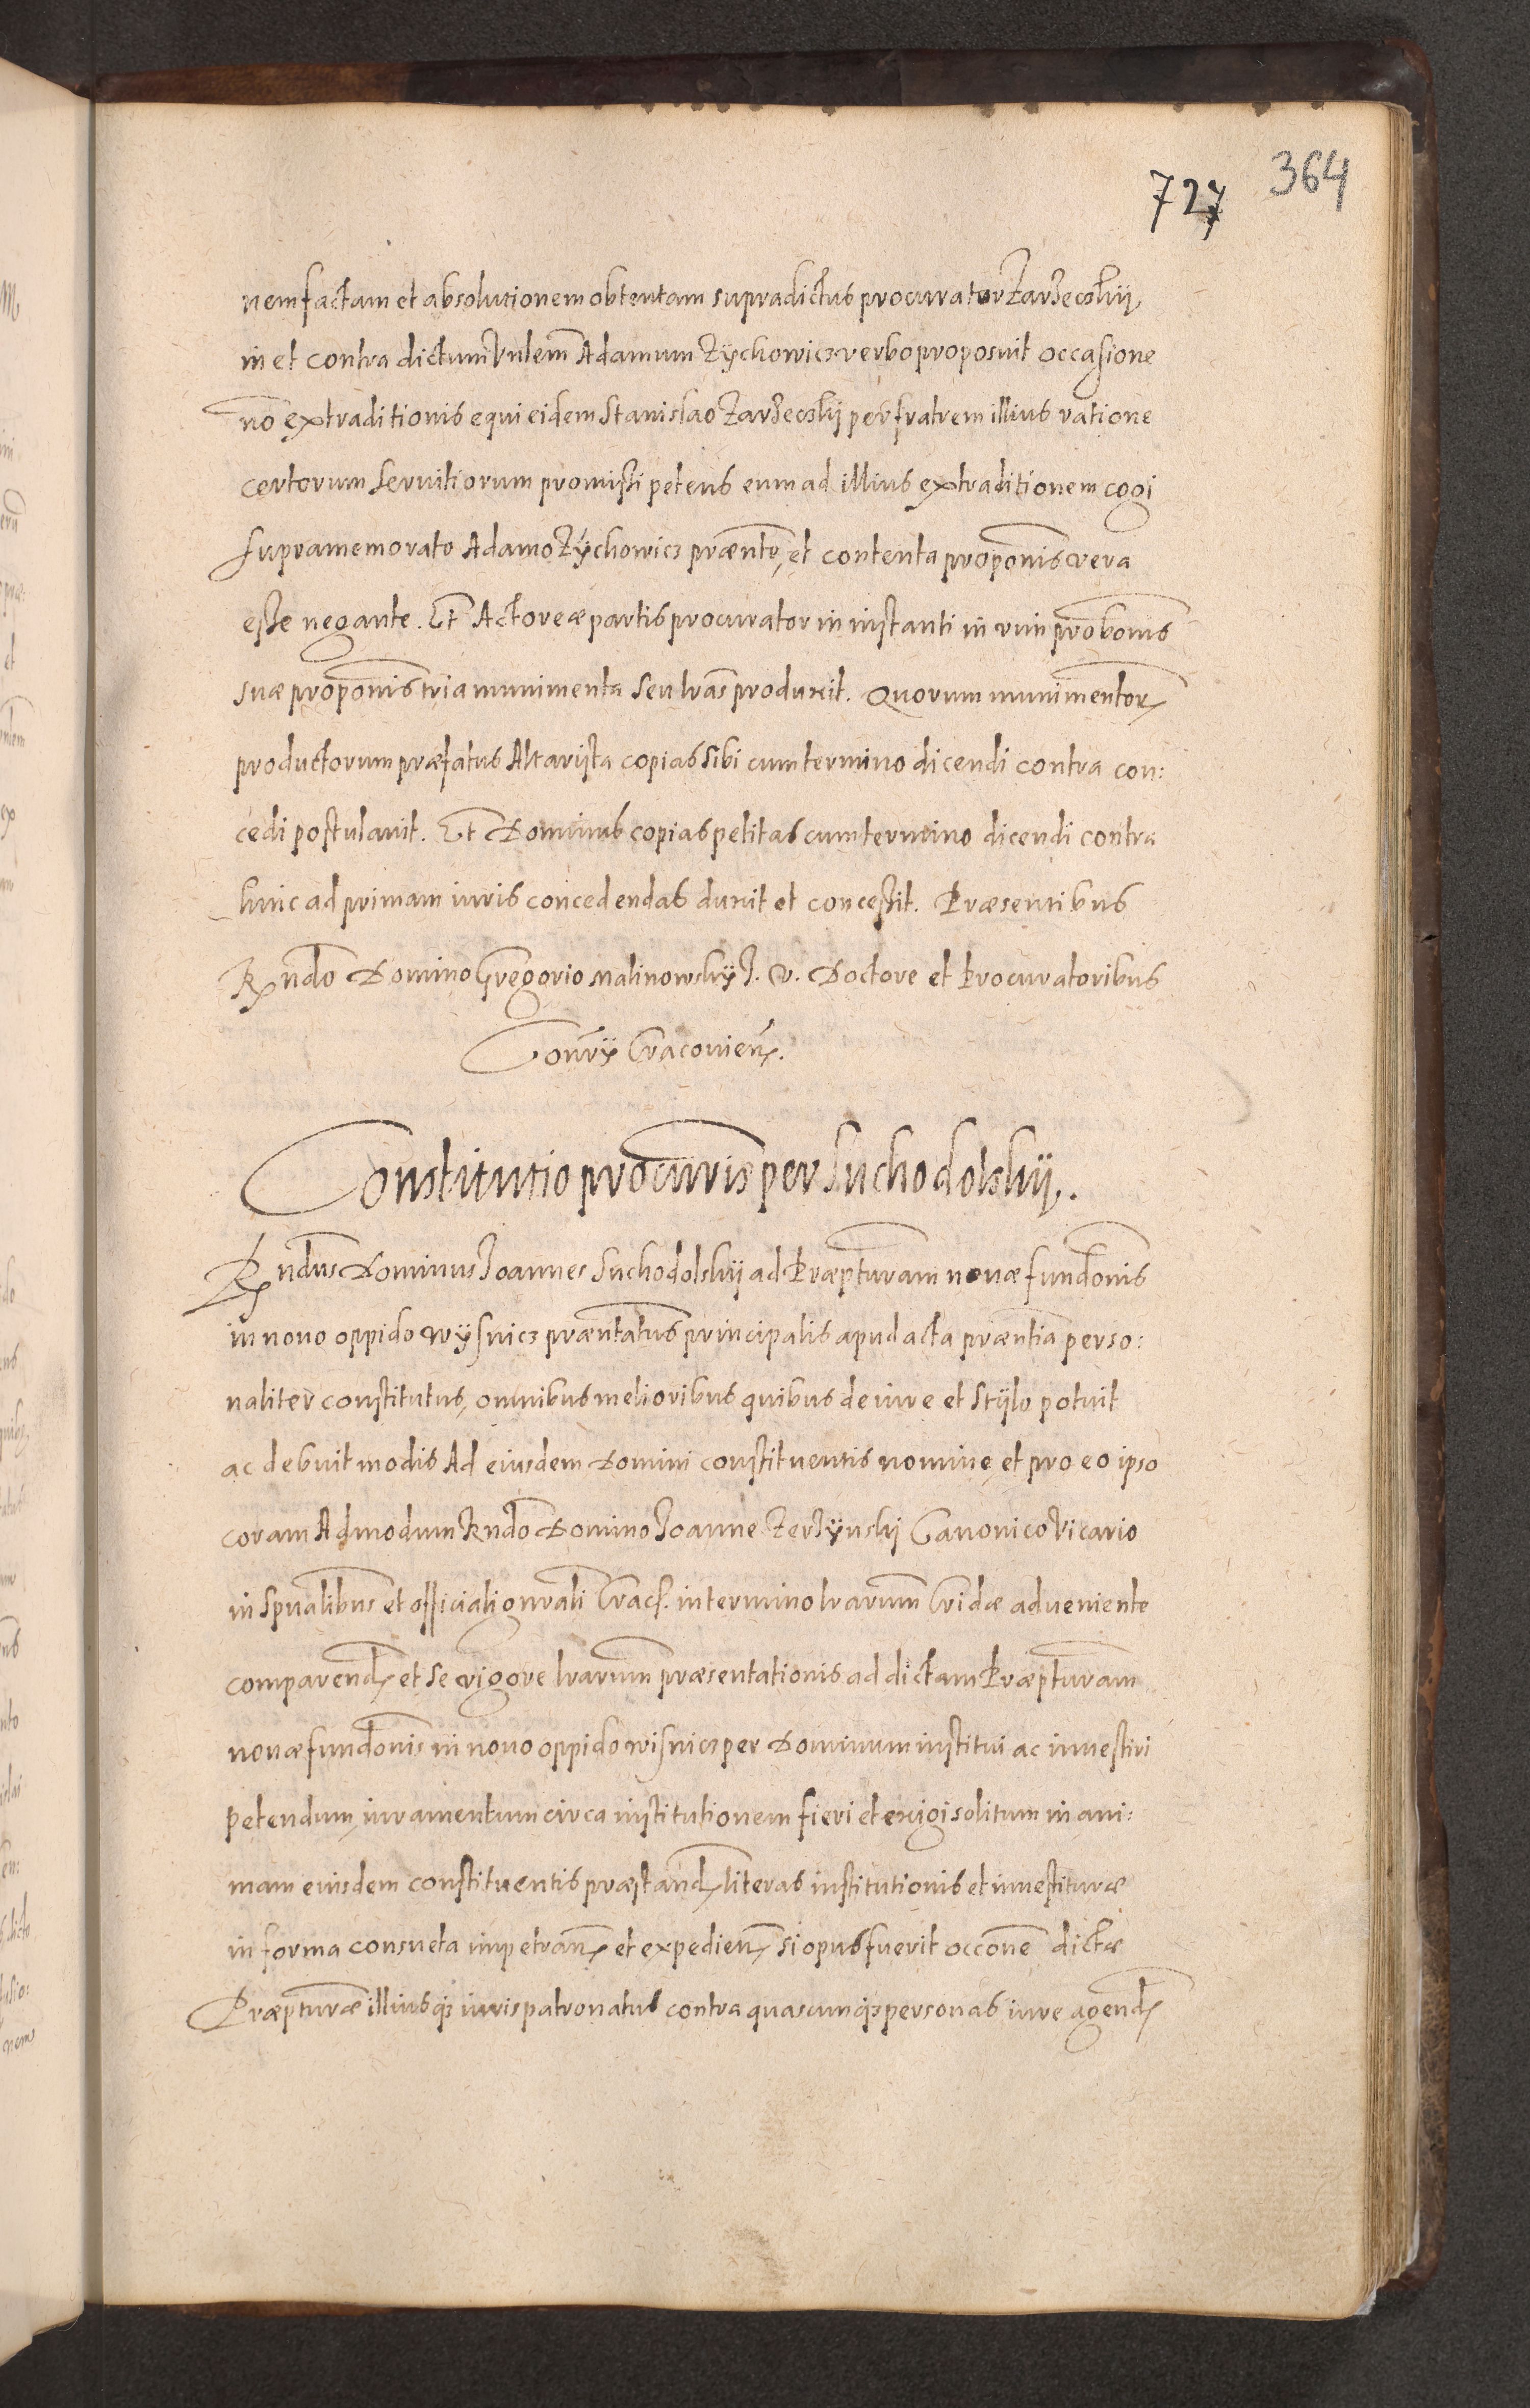 727 364
nem factam et absolutionem obtentam supradictus procurator Zarzecskij,
in et contra dictum Vnlem Adamum Zÿchowicz verbo proposuit occasione
no extraditionis equi eidem Stanislao Zarzecskij per fratrem illius ratione
certorum seruitiorum promissi petens eum ad illius extraditionem cogi
supramemorato Adamo Zÿchowicz prænte, et contenta proponis vera
esse negante. Et Actoreæ partis procurator in instanti in vim probonis
suæ proponis tria munimenta seu lras produxit. Quorum munimentor
productorum præfatus Altarista copias sibi cum termino dicendi contra con:
cedi postulauit. Et Dominus copias petitas cum termino dicendi contra
hinc ad primam iuris concedendas duxit et concessit. Præsentibus
Rndo Domino Gregorio Malinowskÿ J. V. Doctore et Procuratoribus
Conrÿ Cracouien.
Constitutio procuris per Suchodolskij.
Rndus Dominus Joannes Suchodolskij ad Præpturam nouæ fundonis
in nouo oppido Wÿsnicz præntatus principalis apud acta præntia perso:
naliter constitutus, omnibus melioribus quibus de iure et stÿlo potuit
ac debuit modis Ad eiusdem Domini constituentis nomine et pro eo ipso
coram Admodum Rndo Domino Joanne Zerzÿnskj Canonico Vicario
in Spualibus et officiali gnrali Crac. in termino lrarum Cridæ adueniente
comparend et se vigore lrarum præsentationis ad dictam Præpturam
nouæ fundonis in nouo oppido Wisnicz per Dominum institui ac inuestiri
petendum, iuramentum circa institutionem fieri et exigi solitum in ani:
mam eiusdem constituentis præstand, literas institutionis et inuestituræ
in forma consueta impetran et expedien, si opus fuerit occone dictæ
Præpturæ illiusq3 iuris patronatus contra quascunq3 personas iure agend